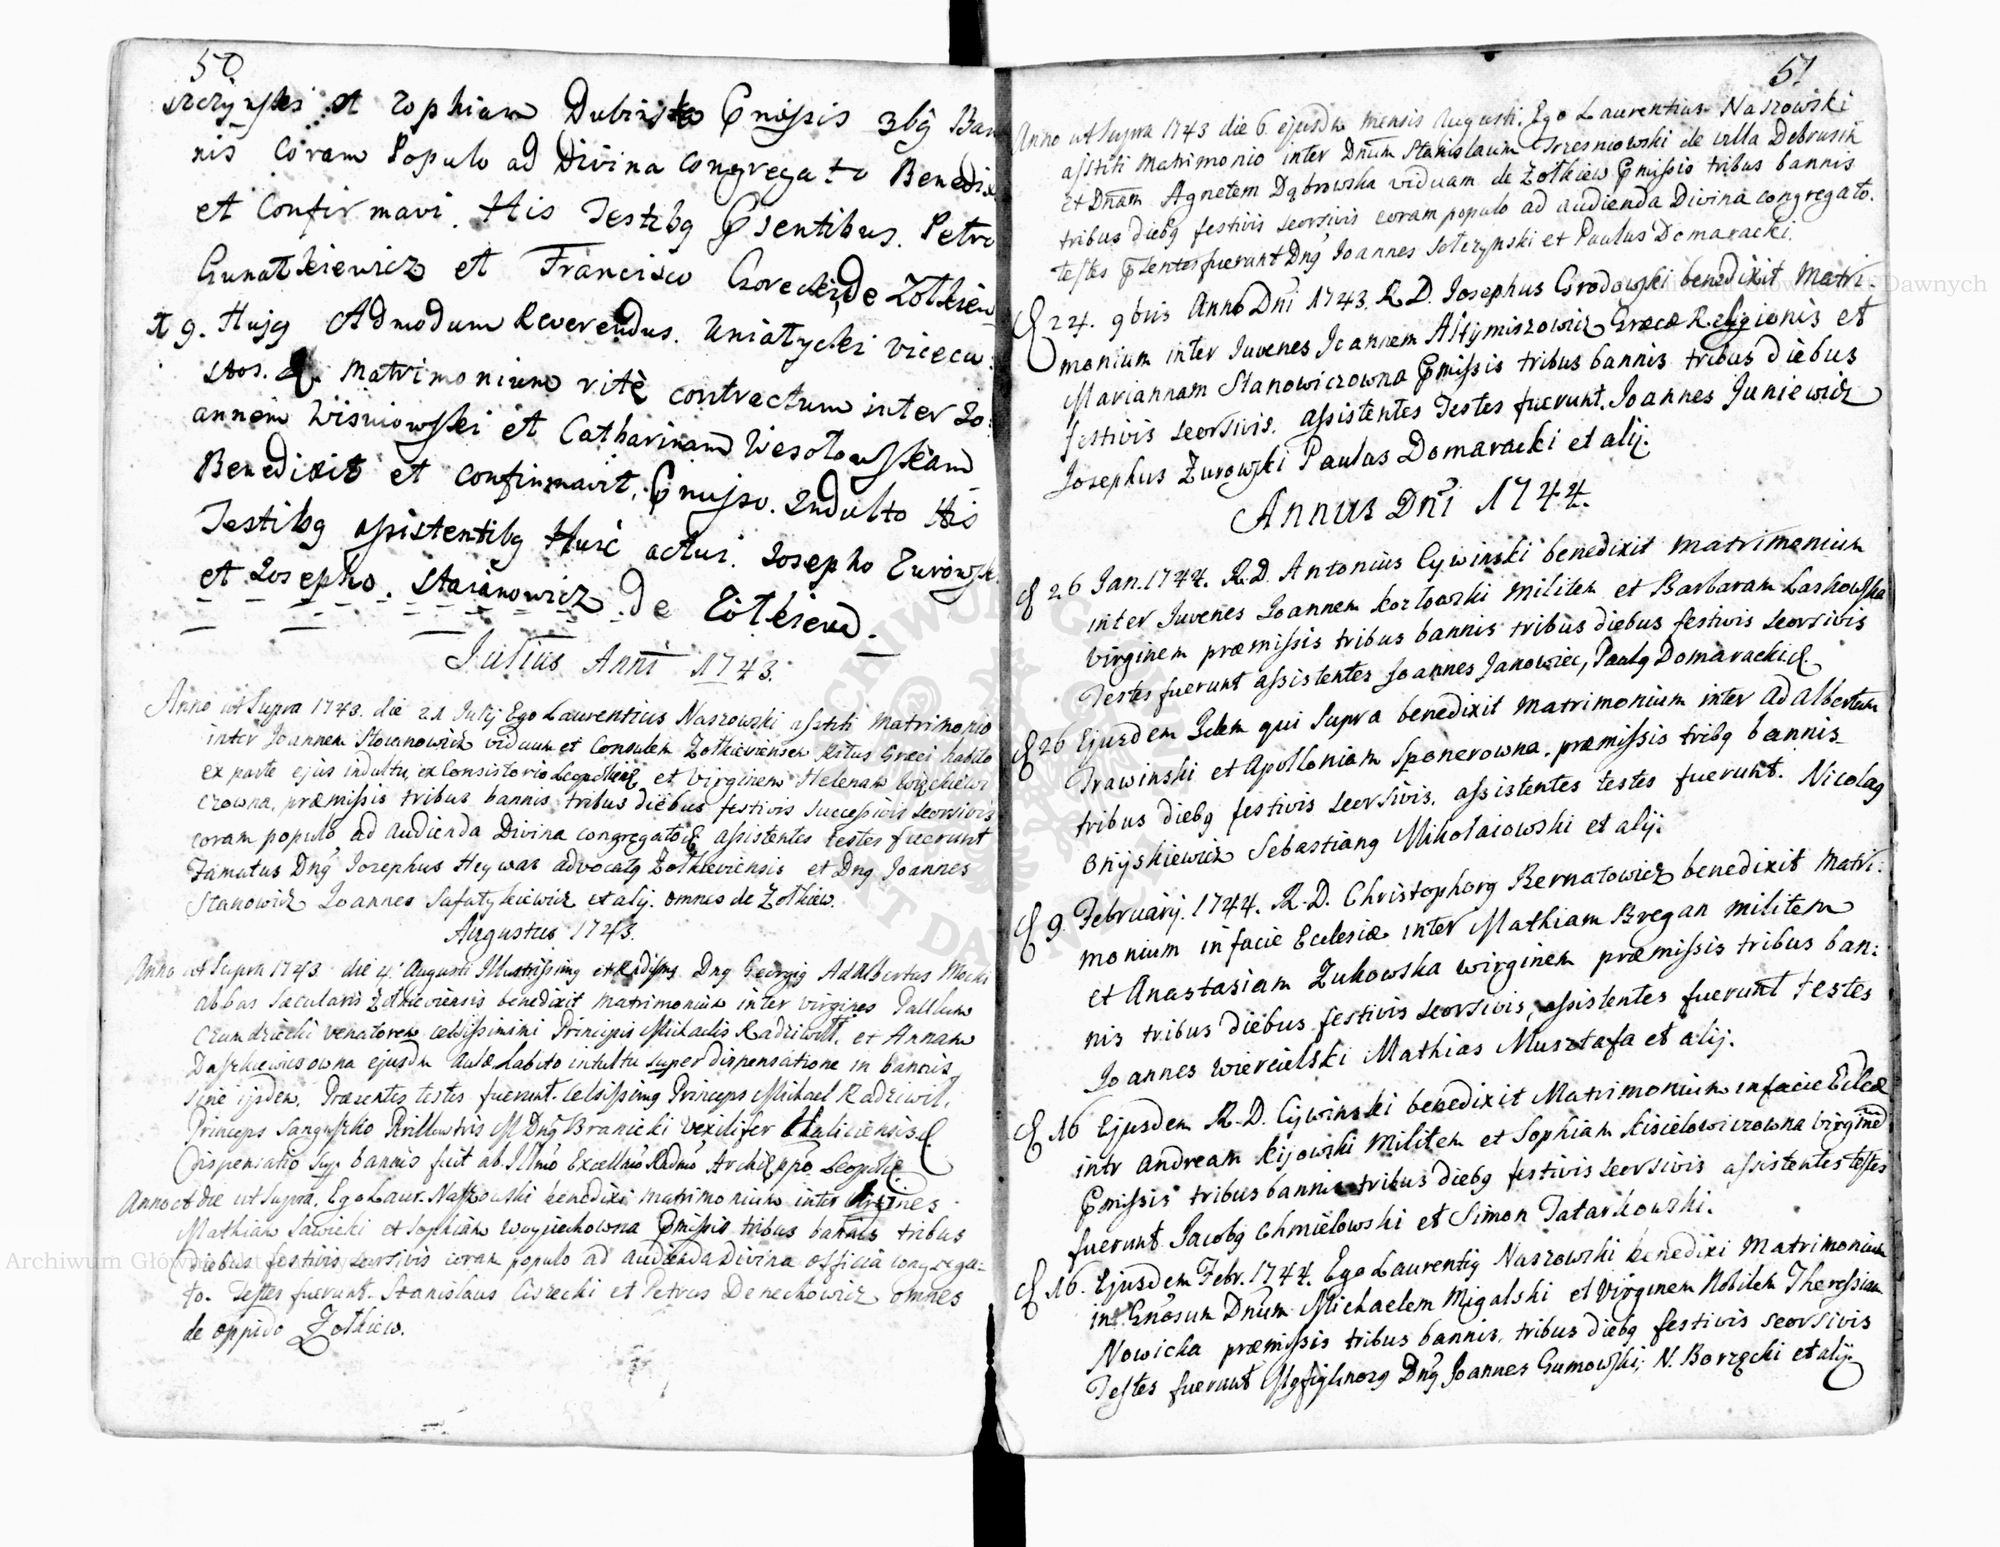 50
szczynski et Zophiam Dubinska Pmissis 3bg Ban
nis Coram Populo ad Divina congregato Benedix
et Confirmavi. His Testibg Psentibus. Petro
Gunatkiewicz et Francisco Gorecki de Zolkiew
A 9. Hujg Admodum Reverendus. Uniatycki vicecu
stos. Matrimonium ritè contractum inter Jo:
annem Wisniowski et Catharinam Wesołowskam
Benedixit et confirmavit, Pmisso. Indulto His
Testibg assistentibg Huic actui. Josepho Zurowsk
et Josepho. Stasanowicz de Zołkiew.
Julius Anni 1743.
Anno ut Supra 1743. die 21 Julij Ego Laurentius Naszowski astiti Matrimonio
inter Joannem Stovanowicz viduum et Consulem Zołkieviensem Ritus Græci habito
ex parte ejus indultu ex Consistorio Leopoliens et Virginem Helenam Wąchiewi
czowna, præmissis tribus bannis tribus diebus festivis successivis seorsivis
coram populo, ad audienda Divina congregato & assistentes testes fuerunt
Famatus Dng Josephus Heywar advocatg Zołkieviensis et Dng Joannes
Stanowicz Joannes Safatykiewicz et alij. omnes de Zołkiew.
Augustus 1743.
Anno ut Supra 1743 die 4. Augusti Illustrissimg et Rndissmg Dng Georgig Adalbertus Mocki
abbas Sæcularis Zołkieviensis benedixit matrimonium inter virgines Paulum
Czumdziecki venatorem celsissimi Principis Michaelis Radziwiłł, et Annam
Daszkiewiczowna ejusdm Aulæ habito intultu super dispensatione in bannis
sine ijsdem. Præsentes testes fuerunt. Celsissimg Princeps Michael Radziwil,
Princeps Sanguszko Perillustris M Dng Branicki vexilifer Haliciensis &
Dispensatio sup. bannis fuit ab Illmo Excellmo Rndmo Archieppo Leopolie.
Anno et die ut Supra. Ego Laur. Naszowski benedixi matrimonium inter virgines
Mathiam Sawicki et Sophiam Woyciechowna Pmissis tribus bannis tribus
diebus festivis seorsivis coram populo ad audienda Divina officia congrega:
to. Testes fuerunt. Stanislaus Ciszecki et Petrus Denechowicz omnes
de oppido Zołkiew.
51
Anno ut Supra 1743 die 6. ejusdm mensis Augusti. Ego Laurentius Naszowski
astiti matrimonio inter Dnum Stanislaum Trzesniowski de villa Dobrusin
et Dnam Agnetem Dąbrowska viduam de Zołkiew Pmissis tribus bannis
tribus diebg festivis seorsivis coram populo ad audienda Divina congregato.
testes Psentes fuerunt Dng Joannes Sołczynski et Paulus Domaracki.
& 24. 9bris Anno Dni 1743. R. D. Josephus Grodowski benedixit Matri
monium inter Juvenes Joannem Altymiszowicz Græcæ Religionis et
Mariannam Stanowiczowna Pmissis tribus bannis tribus diebus
festivis seorsivis. assistentes Testes fuerunt. Joannes Juniewicz
Josephus Zurowski Paulus Domaracki et alij.
Annus Dni 1744.
& 26 Jan. 1744. R. D. Antonius Cywinski benedixit matrimonium
inter Juvenes Joannem Kozłowski Militem et Barbaram Laskowska
virginem præmissis tribus bannis tribus diebus festivis seorsivis
Testes fuerunt assistentes Joannes Janowiec, Paulg Domaracki &
& 26 Ejusdem Idem qui Supra benedixit Matrimonium inter Adalbertum
Trawinski et Apolloniam Sponerowna. præmissis tribg bannis
tribus diebg festivis seorsivis. assistentes testes fuerunt. Nicolag
Onyskiewicz Sebastiang Mikolaiowski et alij.
& 9. Februarij. 1744. R. D. Christophorg Bernatowicz benedixit Matri:
monium in facie Ecclesiæ inter Mathiam Bregan militem
et Anastasiam Zukowska wirginem præmissis tribus ban:
nis tribus diebus festivis seorsivis, assistentes fuerunt testes
Joannes Wiercielski Mathias Musztafa et alij.
& 16 Ejusdem R. D. Cywinski benedixit Matrimonium in facie Eclæ
intr Andream Kijowski Militem et Sophiam Kisielowiczowna virginem
Pmissis tribus bannis tribus diebg festivis seorsivis assistentes testes
fuerunt. Jacobg Chmielowski et Simon Tatarkowski.
& 16. Ejusdem Febr. 1744. Ego Laurentig Naszowski benedixi Matrimonium
int. Gnosum Dnum Michaelem Migalski et Virginem Nobilem Theressiam
Nowicka præmissis tribus bannis, tribus diebg festivis seorsivis
Testes fuerunt Dng Joannes Gumowski; N. Borzęcki et alij.